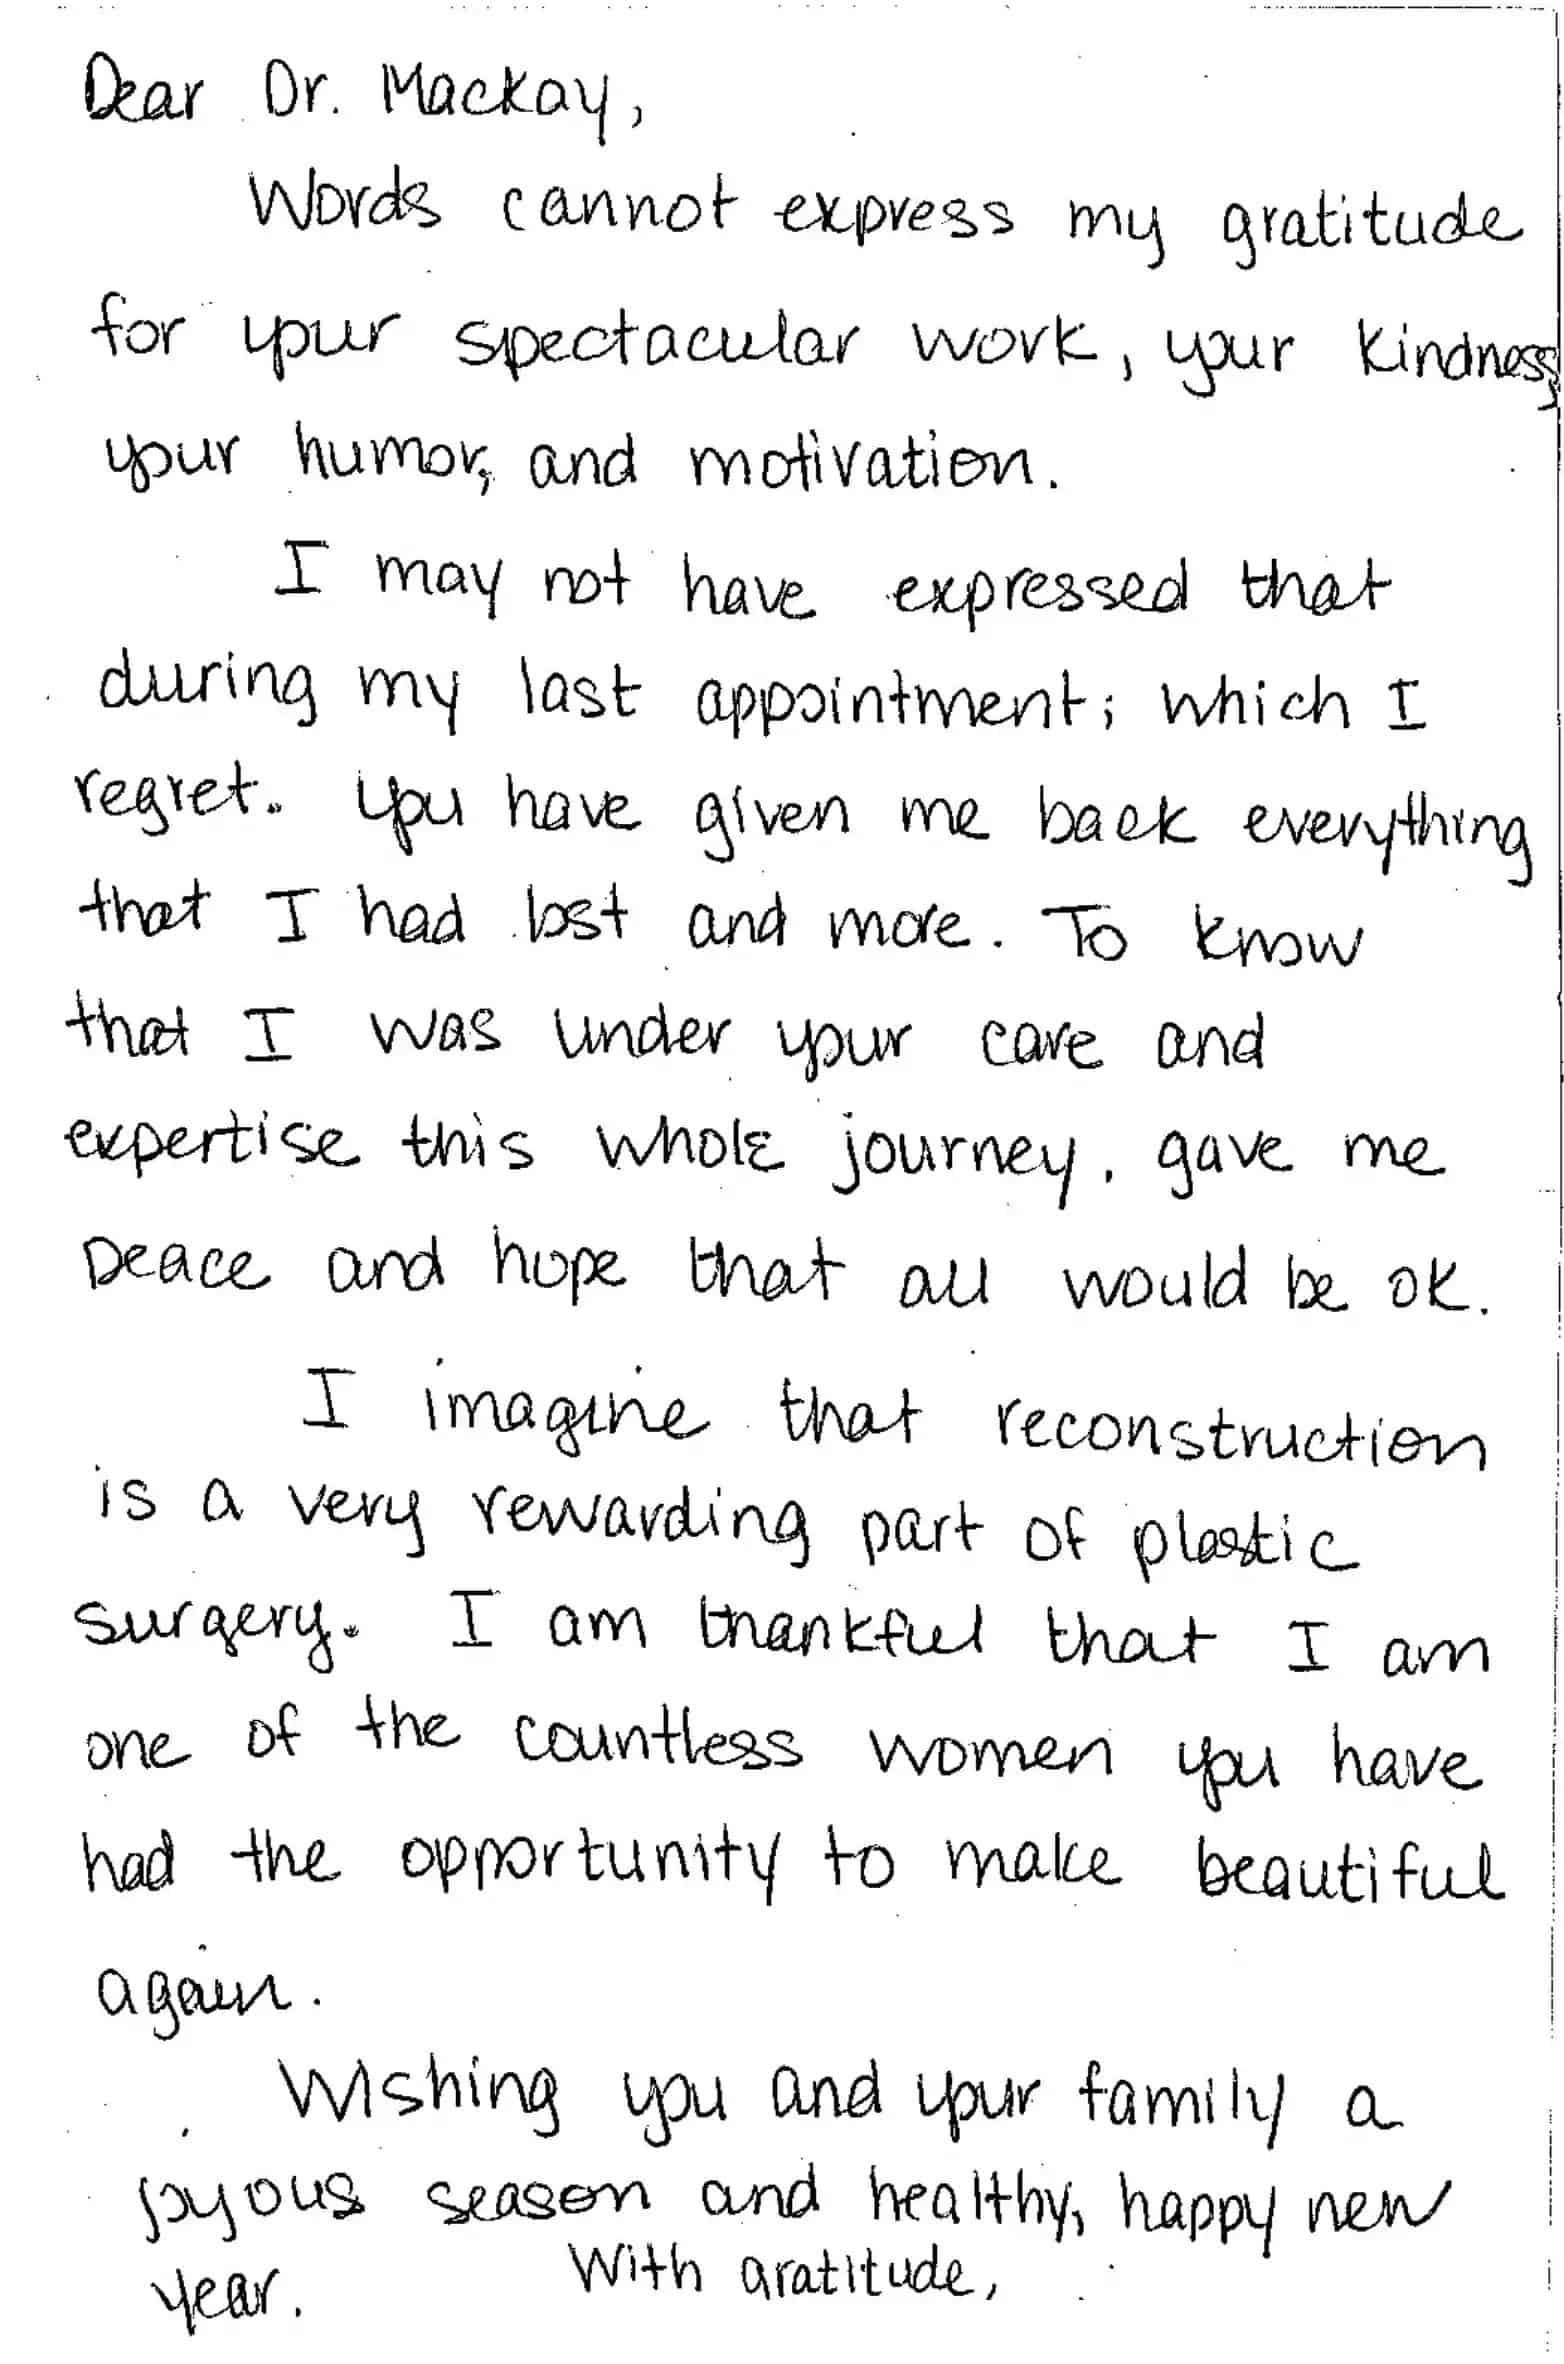 Dear Dr. Mackay,
Words cannot express my gratitude
for your spectacular work, your kindness,
your humor, and motivation.
I may not have expressed that
during my last appointment; which I
regret. You have given me back everything
that I had lost and more. To know
that I was under your care and
expertise this whole journey, gave me
peace and hope that all would be ok.
I imagine that reconstruction
is a very rewarding part of plastic
surgery. I am thankful that I am
one of the countless women you have
had the opportunity to make beautiful
again.
Wishing you and your family a
joyous season and healthy, happy new
year.
With gratitude,